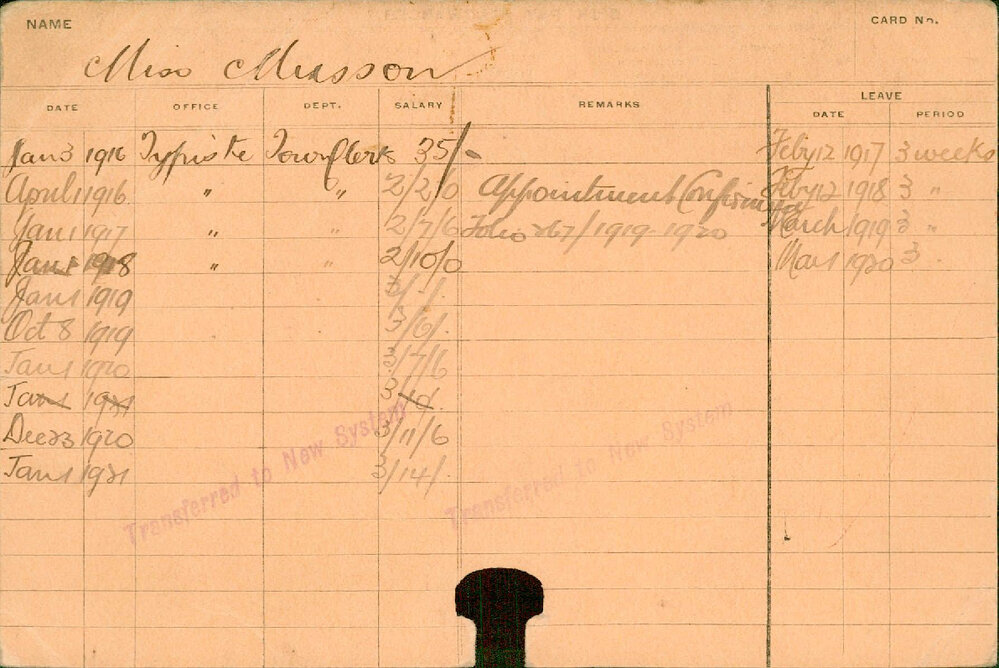 NAME
CARD No.
Miss Musson
DATE OFFICE DEPT. SALARY REMARKS LEAVE
DATE PERIOD
Jan 3 1916 Typiste Town Clerk 35/- Feby 12 1917 3 weeks
April 1 1916 " " 2/2/0 Appointment Confirmed Feby 12 1918 3 "
Jan 1 1917 " " 2/7/6 Folio 267/1919-1920 March 1919 3 "
Jan 1 1918 " " 2/10/0 Mar 1 1920 3
Jan 1 1919 3/ /.
Oct 8 1919 3/6/.
Jan 1 1920 3/7/6
Jan 1 1921 3/10/.
Dec 23 1920 3/11/6
Jan 1 1921 3/14/.
Transferred to New System
Transferred to New System